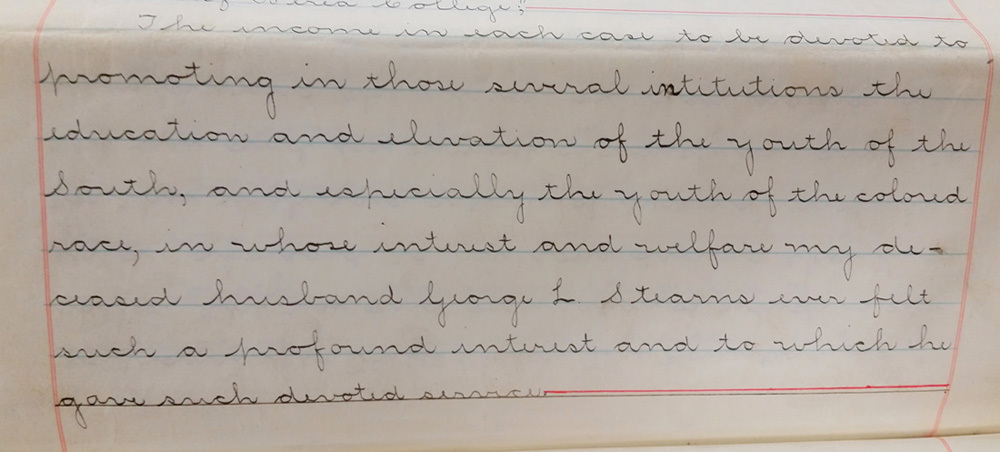 College;
The income in each case to be devoted to
promoting in those several intitutions the
education and elevation of the youth of the
South, and especially the youth of the colored
race, in whose interest and welfare my de-
ceased husband George L. Stearns ever felt
such a profound interest and to which he
gave such devoted service.